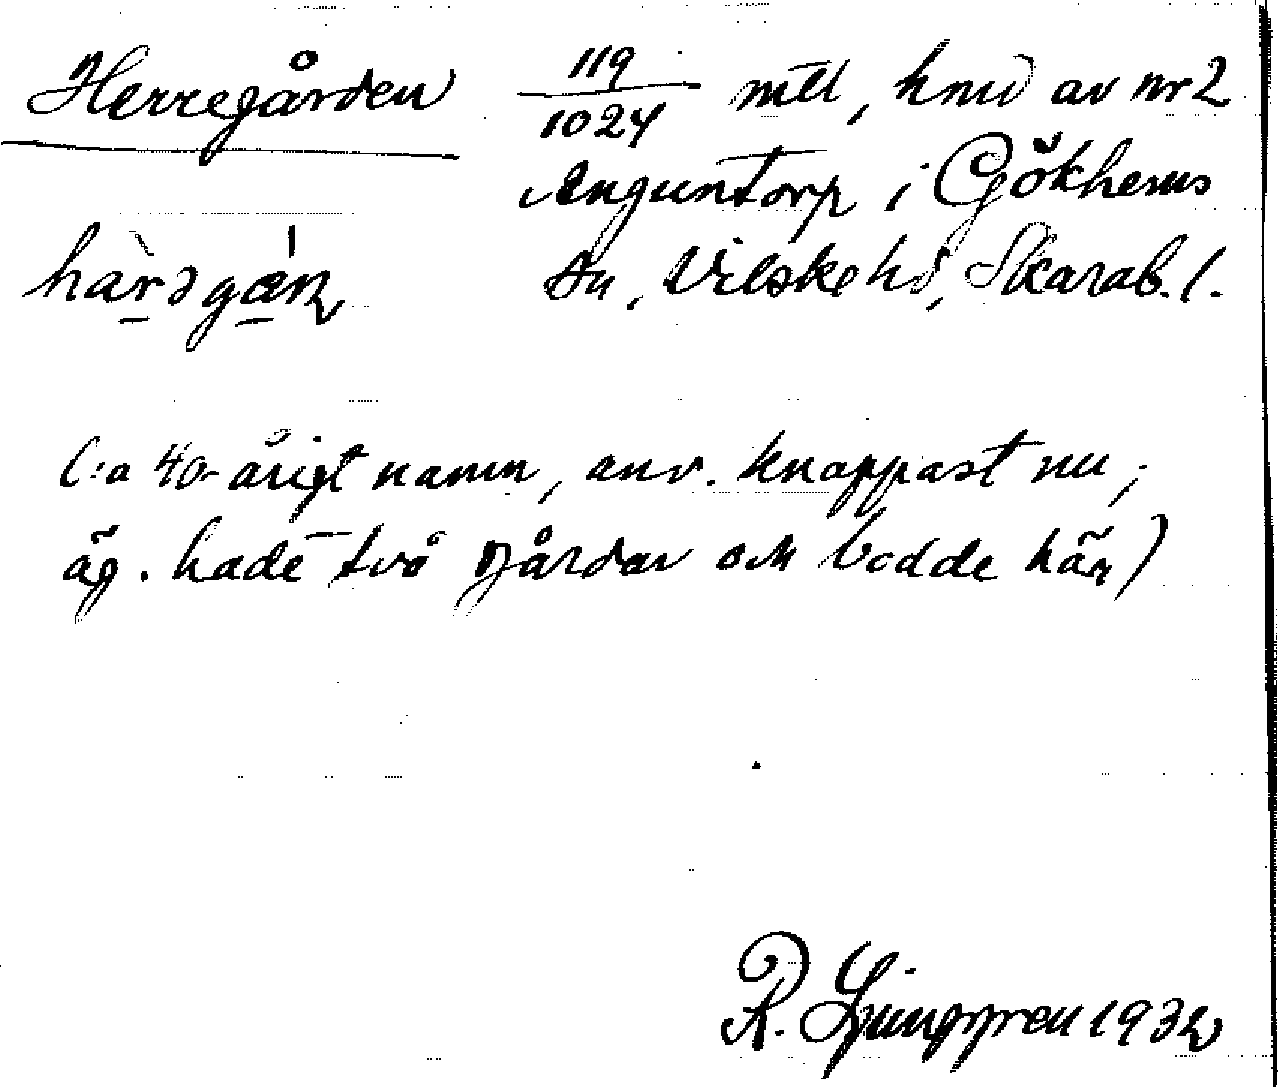 Herregården 119/1024 mtl, hmd av nr 2
Anguntorp i Gökhems
hàrsgán sn, Vilske hd, Skarab. l.
(:a 40-årigt namn, anv. knappast nu;
äg. hade två gårdar och bodde här)
R. Ljunggren 1932